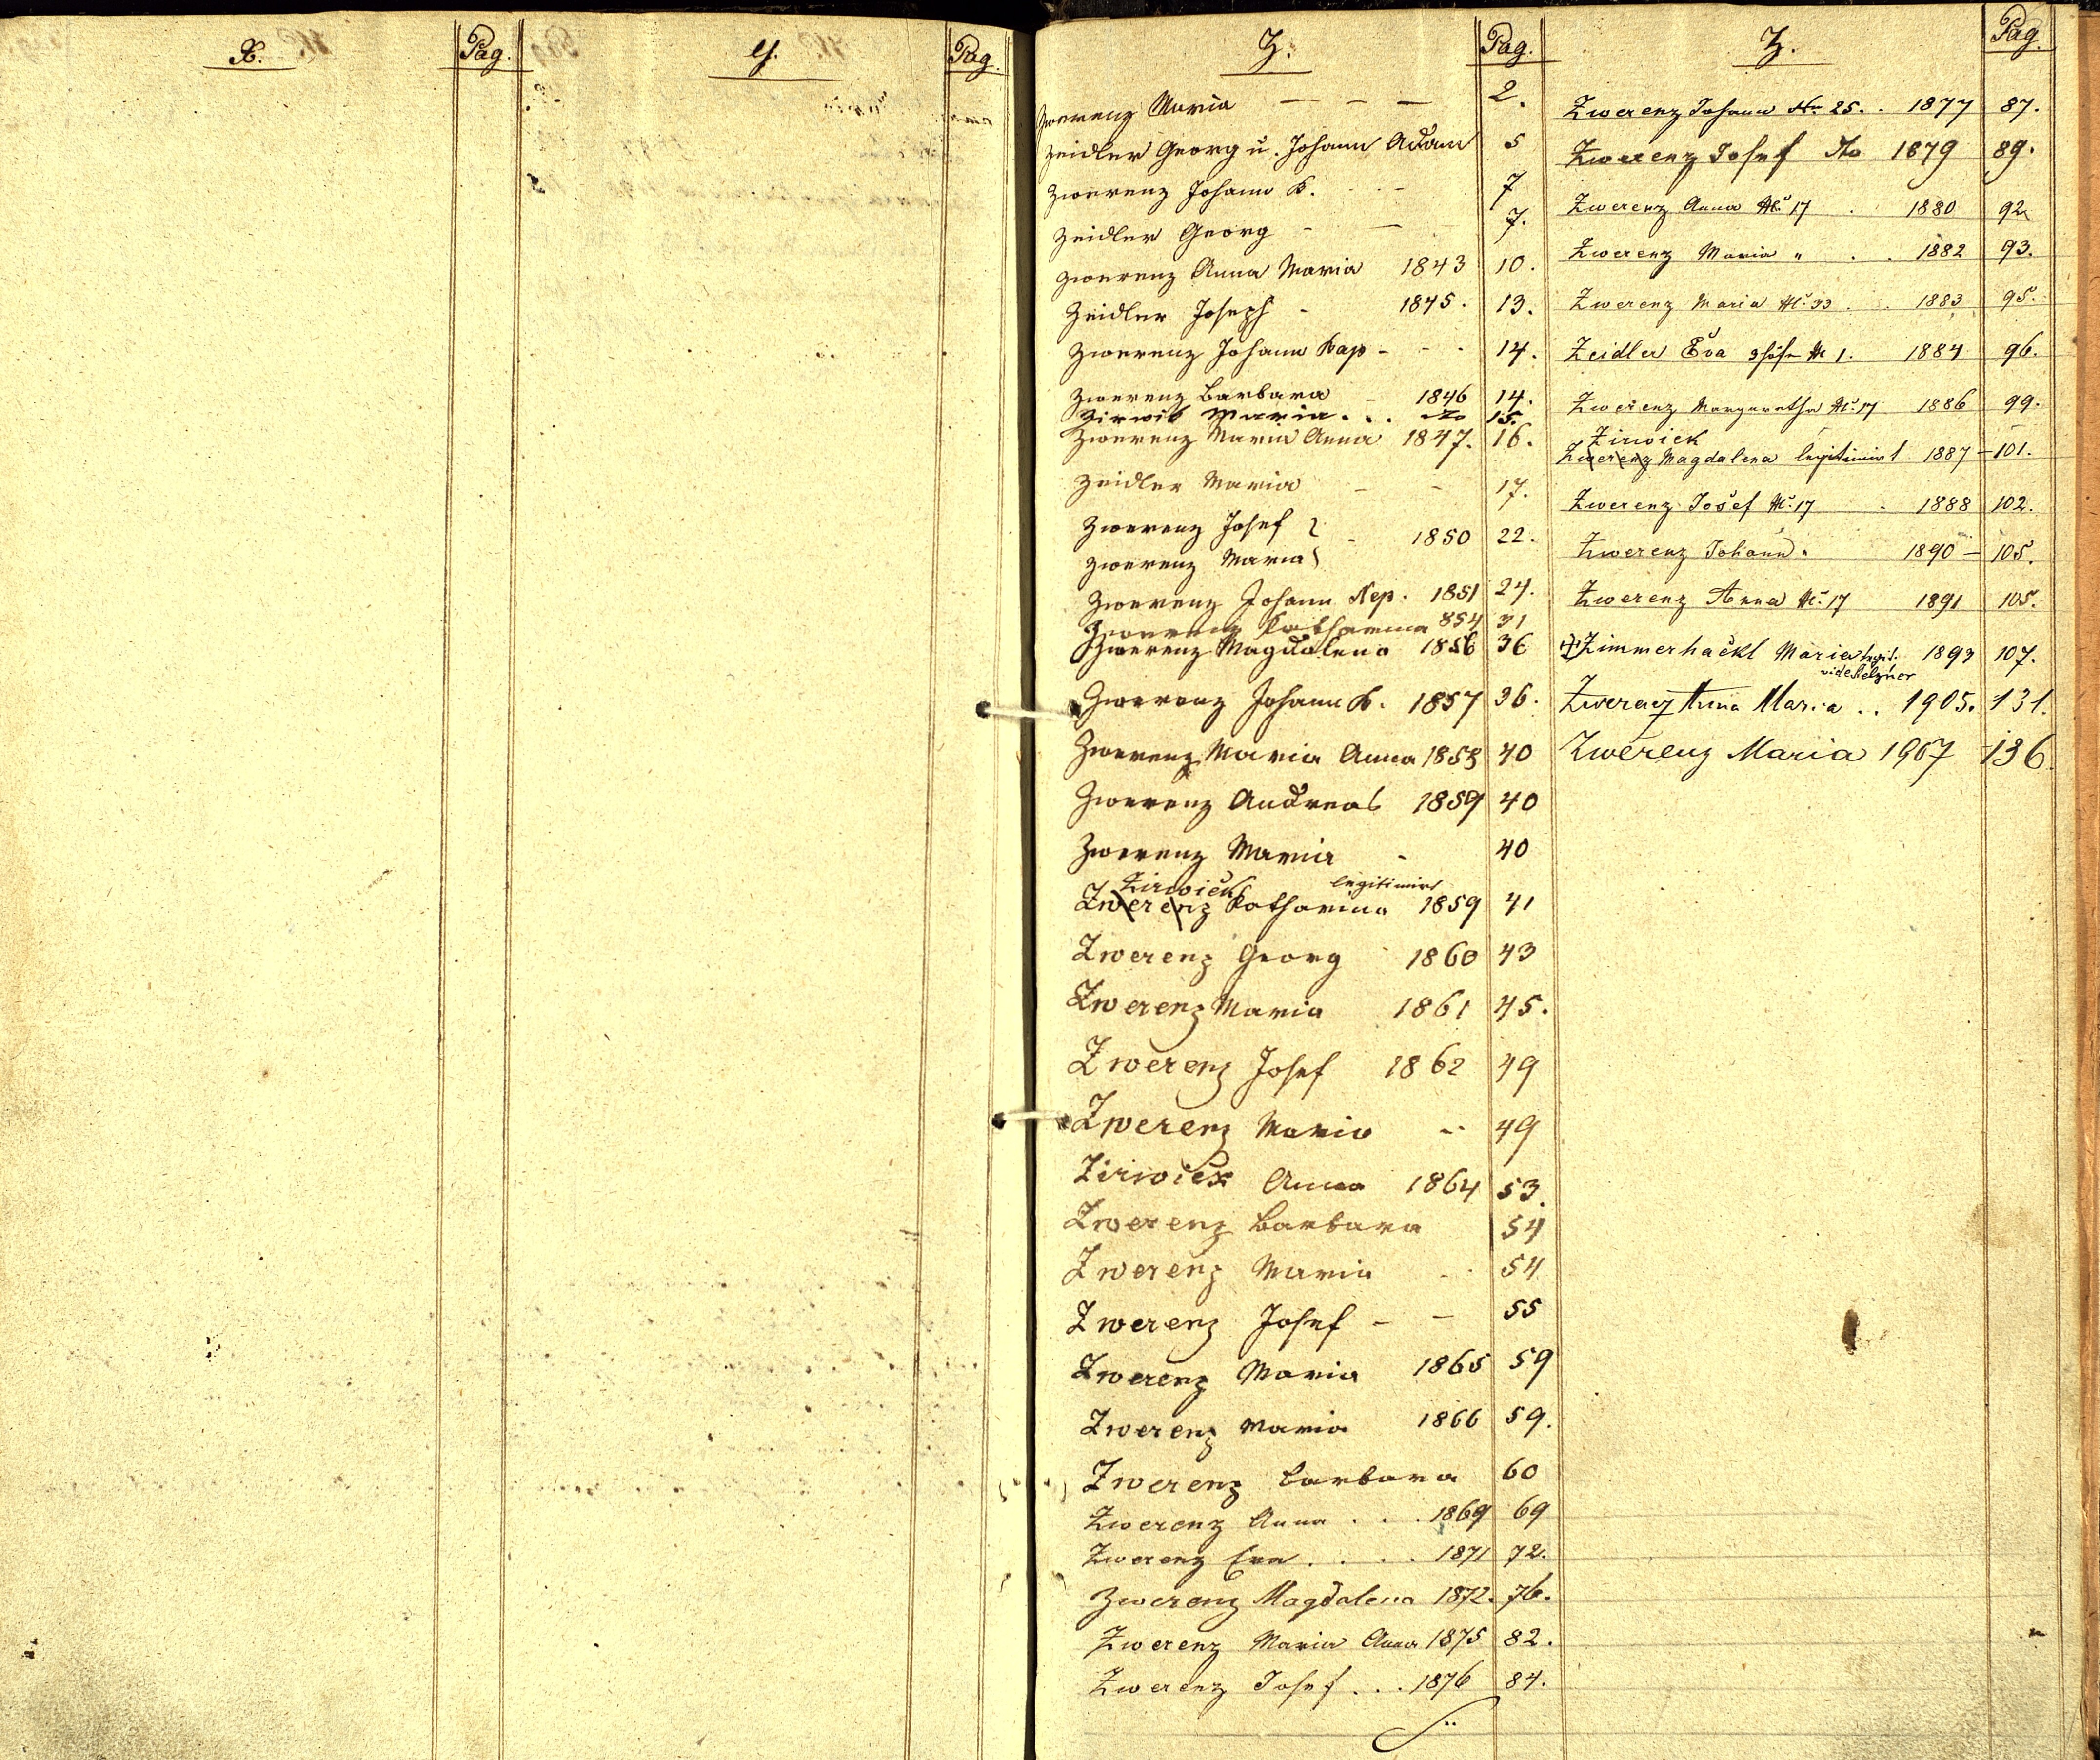 X. Pag. Y. Pag.
Z. Pag.
Zwerenz Maria — — — 2.
Zeidler Georg u. Johann Adam 5
Zwerenz Johann B. - - 7
Zeidler Georg - — 7.
Zwerenz Anna Maria 1843 10.
Zeidler Joseph - 1845. 13.
Zwerenz Johann Bap - - - 14.
Zwerenz Barbara - 1846 14.
Maria . . . 15.
Zwerenz Maria Anna 1847. 16.
Zeidler Maria - - 17.
Zwerenz Josef } - 1850 22.
Zwerenz Maria }
Zwerenz Johann Nep. 1851 24.
Zwerenz Katharina 854 31
Zwerenz Magdalena 1856 36
Zwerenz Johann B. 1857 36.
Zwerenz Maria Anna 1858 40
Zwerenz Andreas 1859 40
Zwerenz Maria - 40
Zirwick legitimirt
Zwerenz Katharina 1859 41
Zwerenz Georg 1860 43
Zwerenz Maria 1861 45.
Zwerenz Josef 1862 49
Zwerenz Maria -- 49
Zirwick Anna 1864 53.
Zwerenz Barbara 54
Zwerenz Maria - - 54
Zwerenz Josef - — 55
Zwerenz Maria 1865 59
Zwerenz Maria 1866 59.
Zwerenz Barbara 60
Zwerenz Anna . . . 1869 69
Zwerenz Eva . . . . 1871 72.
Zwerenz Magdalena 1872. 76.
Zwerenz Maria Anna 1875 82.
Zwerenz Josef . . . 1876 84.
Z. Pag.
Zwerenz Johann No 25. . 1877 87.
Zwerenz Josef 1879 89.
Zwerenz Anna No 17 . 1880 92
Zwerenz Maria " . . 1882 93.
Zwerenz Maria No 33 . . 1883 95.
Zeidler Eva No 1. 1884 96.
Zwerenz Margaretha No 17 1886 99.
Zirwick
Zwerenz Magdalena legitimirt 1887 - 101.
Zwerenz Josef No 17 . 1888 102.
Zwerenz Johann " 1890 — 105.
Zwerenz Anna No 17 1891 105.
Zimmerhackl Maria legit. 1893 107.
vide Melzner
Zwerenz Anna Maria . . 1905. 131.
Zwerenz Maria 1907 136.